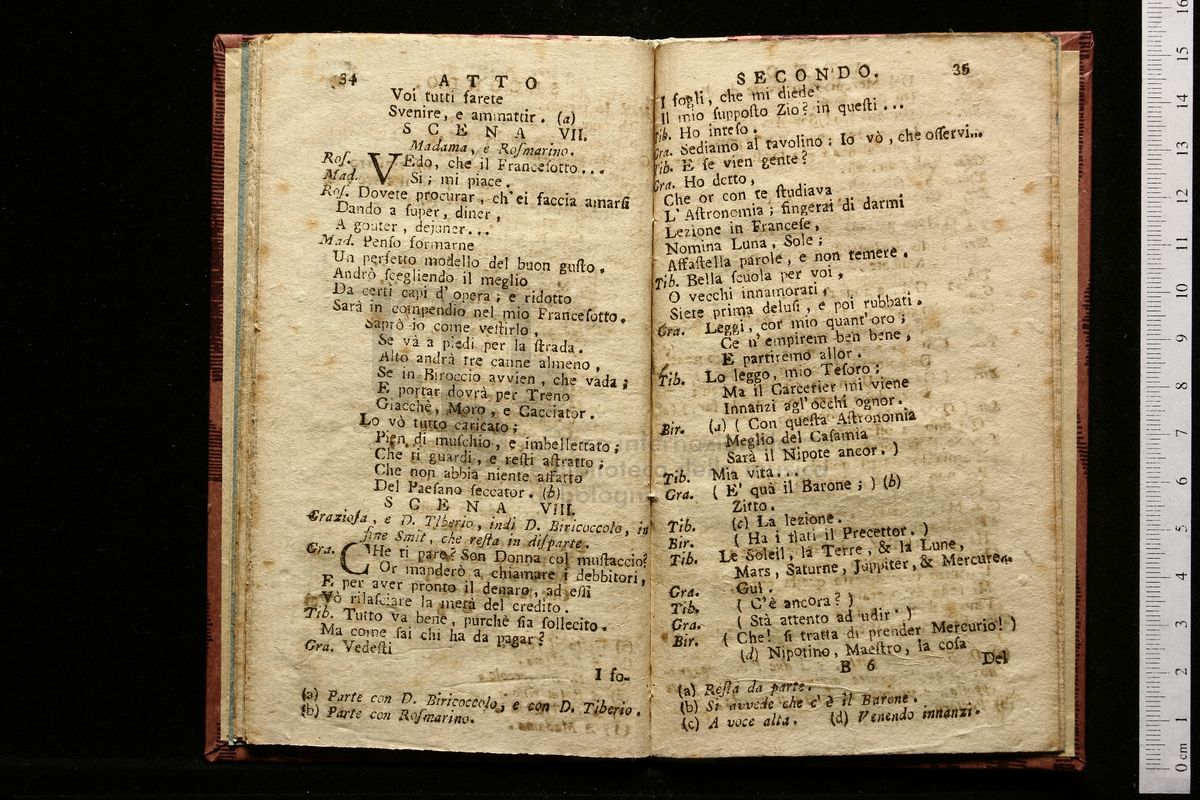 34 ATTO
Voi tutti farete
Svenire, e ammattir. (a)
SCENA VII.
Madama, e Rosmarino.
Ros. VEdo, che il Francesotto...
Mad. Si; mi piace.
Ros. Dovete procurar, ch'ei faccia amarsi
Dando a super, diner,
A gouter, dejuner...
Mad. Penso formarne
Un perfetto modello del buon gusto.
Andrò scegliendo il meglio
Da certi capi d'opera; e ridotto
Sarà in compendio nel mio Francesotto.
Saprò io come vestirlo,
Se và a piedi per la strada.
Alto andrà tre canne almeno,
Se in Biroccio avvien, che vada;
E portar dovrà per Treno
Giacchè, Moro, e Cacciator.
Lo vò tutto caricato;
Pien di muschio, e imbellettato;
Che ti guardi, e resti astratto;
Che non abbia niente affatto
Del Paesano seccator. (b)
SCENA VIII.
Graziosa, e D. Tiberio, indi D. Biricoccolo, in
fine Smit, che resta in disparte.
Gra. CHe ti pare? Son Donna col mustaccio?
Or manderò a chiamare i debbitori,
E per aver pronto il denaro, ad essi
Vò rilasciare la metà del credito.
Tib. Tutto va bene, purchè sia sollecito.
Ma come sai chi ha da pagar?
Gra. Vedesti
I fo-
(a) Parte con D. Biricoccolo, e con D. Tiberio.
(b) Parte con Rosmarino.
SECONDO. 35
I fogli, che mi diede
Il mio supposto Zio? in questi...
Tib. Ho inteso.
Gra. Sediamo al tavolino: Io vò, che osservi...
Tib. E se vien gente?
Gra. Ho detto,
Che or con te studiava
L'Astronomia; fingerai di darmi
Lezione in Francese,
Nomina Luna, Sole;
Affastella parole, e non temere.
Tib. Bella scuola per voi,
O vecchi innamorati,
Siete prima delusi, e poi rubbati.
Gra. Leggi, cor mio quant'oro;
Ce n'empirem ben bene,
E partiremo allor.
Tib. Lo leggo, mio Tesoro;
Ma il Carcerier mi viene
Innanzi agl'occhi ognor.
Bir. (a) (Con questa Astronomia
Meglio del Casamia
Sarà il Nipote ancor.)
Tib. Mia vita...
Gra. (E' quà il Barone;) (b)
Zitto.
Tib. (c) La lezione.
Bir. (Ha i flati il Precettor.)
Tib. Le Soleil, la Terre, & la Lune,
Mars, Saturne, Juppiter, & Mercure...
Gra. Gui.
Tib. (C'è ancora?)
Gra. (Stà attento ad udir.)
Bir. (Che! si tratta di prender Mercurio!)
(d) Nipotino, Maestro, la cosa
B 6 Del
(a) Resta da parte.
(b) Si avvede che c'è il Barone.
(c) A voce alta. (d) Venendo innanzi.
0 cm 1 2 3 4 5 6 7 8 9 10 11 12 13 14 15 16